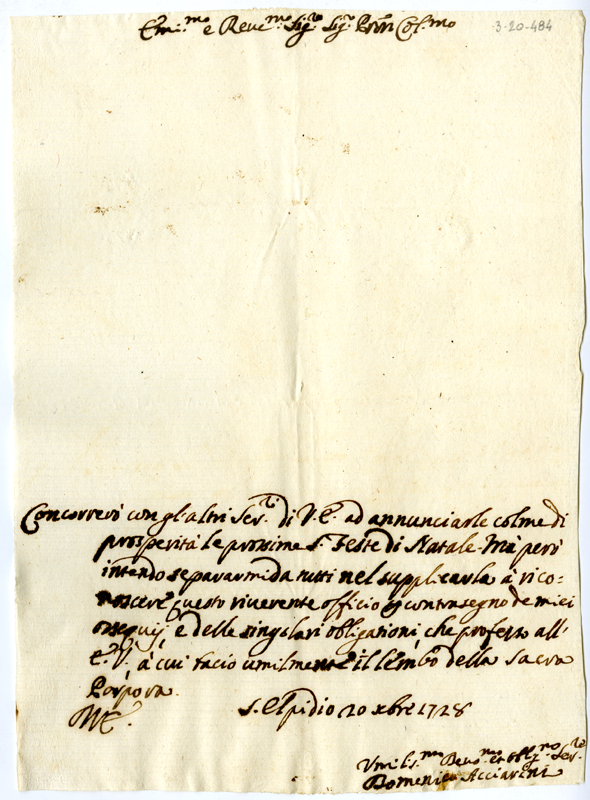 Em.mo e Reve.mo Sig.re Sig.re Pron Col.mo
3-20-484
Concorrerò con gl'altri Ser.ri di V.E. ad annunciarle colme di
prosperità le prossime S. Feste di Natale. Mà però
intendo separarmi da tutti nel supplicarla à rico=
noscere questo riverente officio p contrasegno de miei
ossequij, e delle singolari obligationi, che professo all'
E.V. à cui bacio umilmente il lembo della Sacra
Porpora.
S. Elpidio 20 xbre 1728
Umilis.mo Devo.mo et Oblig.mo Ser.re
Domenico Acciarini